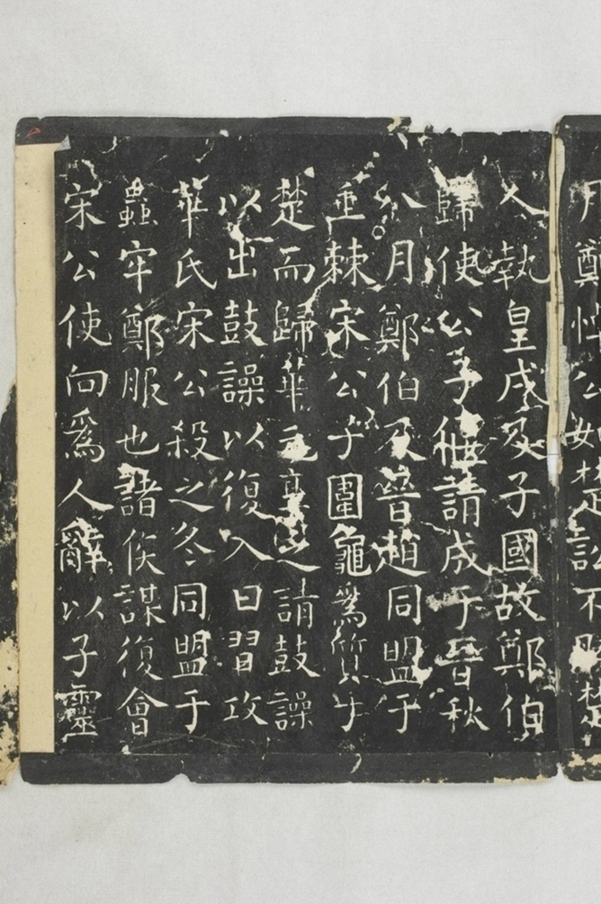 月鄭悼公如楚訟不勝楚
人執皇戌及子國故鄭伯
歸使公子偃請成于晉秋
八月鄭伯及晉趙同盟于
垂棘宋公子圍龜爲質于
楚而歸華元享之請鼓譟
以出鼓譟以復入曰習攻
華氏宋公殺之冬同盟于
蟲牢鄭服也諸侯謀復會
宋公使向爲人辭以子靈